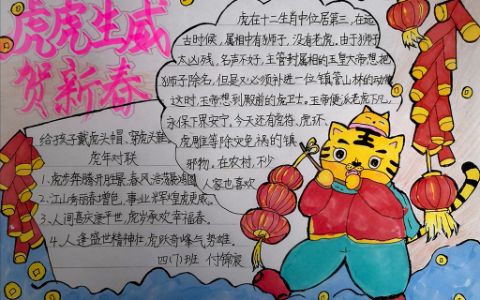 虎虎生威
贺新春
虎在十二生肖中位居第三,在远
古时候,属相中有狮子,没有老虎。由于狮子
太凶残,名声不好,主管封属相的玉皇大帝想把
狮子除名,但是又必须补进一位镇管山林的动物
这时,玉帝想到殿前的虎卫士。玉帝便派老虎下凡,
永保下界安宁。今天还有虎符、虎环、
虎雕等除灾免祸的镇
邪物。在农村,不少
人家也喜欢
给孩子戴虎头帽,穿虎头鞋
虎年对联
1、虎步奔腾开胜景,春风浩荡展鸿图
2、江山秀丽春增色,事业辉煌虎更威。
3、人间喜庆康平世,虎岁承欢幸福春。
4、人逢盛世精神壮,虎跃奇峰气势雄。
四(7)班 付锦宸
王